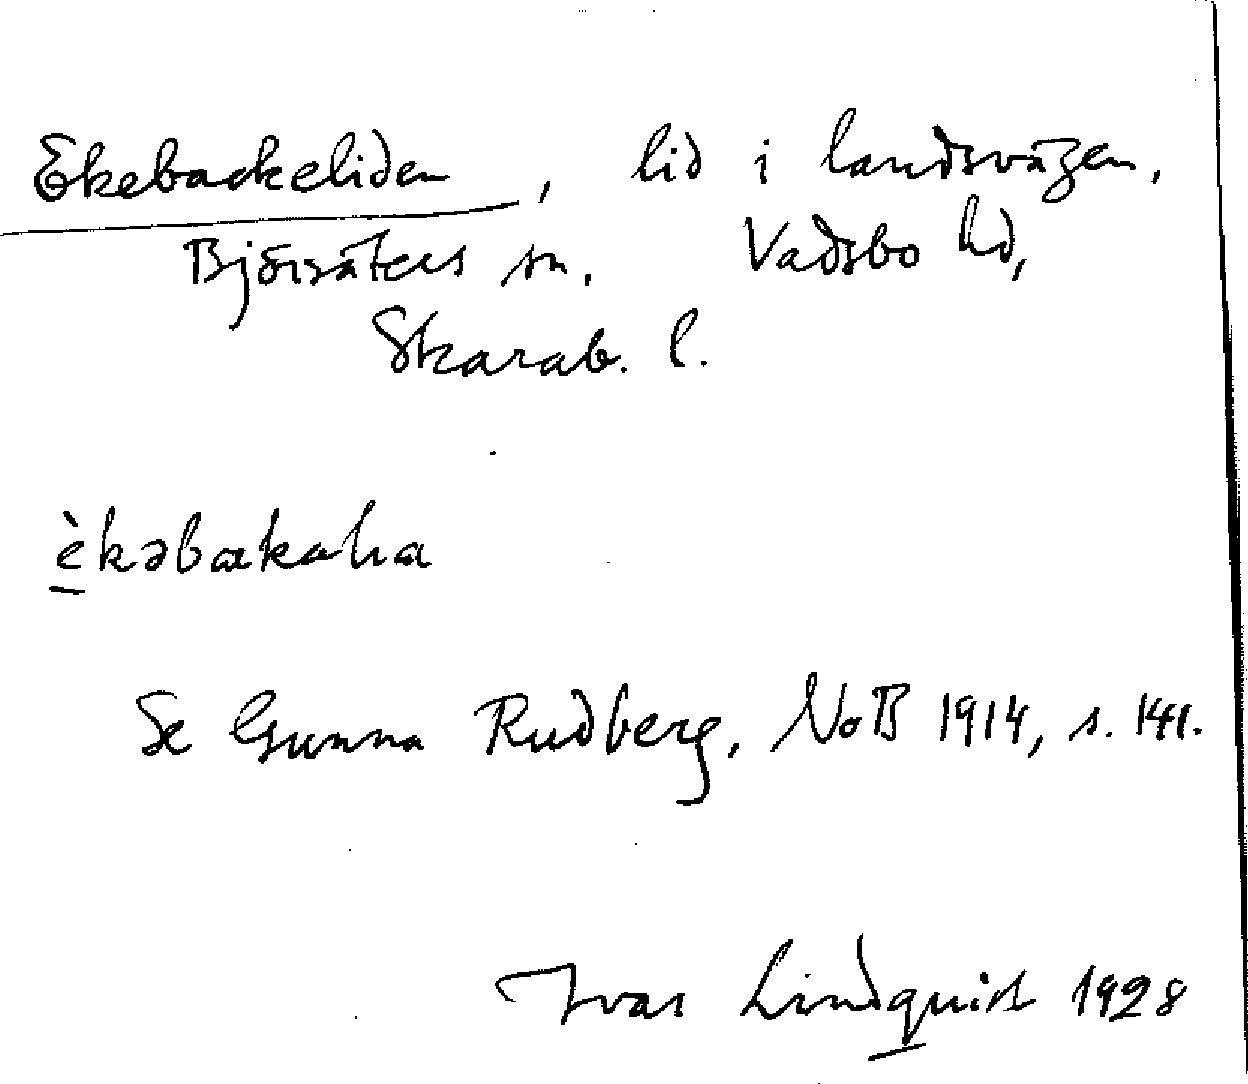 Ekebackeliden, lid i landsvägen,
Björsäters sn. Vadsbo hd,
Skarab. l.
Se Gunnar Rudberg, NoB 1914, s. 141.
Ivar Lindquist 1928